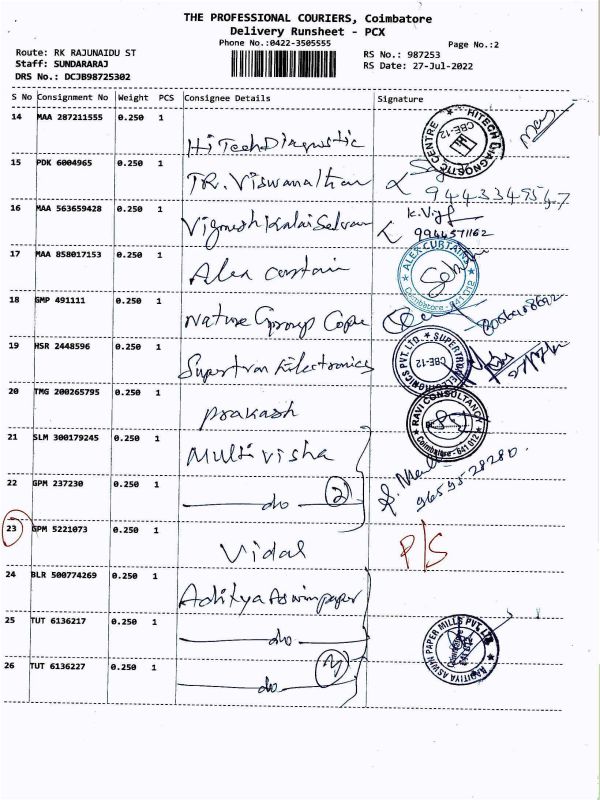 THE PROFESSIONAL COURIERS, Coimbatore
Delivery Runsheet - PCX
Phone No.:0422-3505555
Page No.:2
Route: RK RAJUNAIDU ST
RS No.: 987253
Staff: SUNDARARAJ
RS Date: 27-Jul-2022
DRS No.: DCJB98725302
S No Consignment No Weight PCS Consignee Details Signature
14 MAA 287211555 0.250 1
HiTech Diagnostic
HITECH DIAGNOSTIC CENTRE CBE-12
15 PDK 6004965 0.250 1
TR. Viswanathan
9443349547
16 MAA 563659428 0.250 1
Vignesh Kalai Selvan
9944571162
17 MAA 858017153 0.250 1
Alex curtain
ALEX CURTAINS Coimbatore - 641 012
18 GMP 491111 0.250 1
Nature Group Cope
19 HSR 2448596 0.250 1
Supertron Electronics
SUPERTRON ELECTRONICS PVT. LTD. CBE-12
20 TMG 200265795 0.250 1
prakash
RAVI CONSULTANCY Coimbatore - 641 012
21 SLM 300179245 0.250 1
Multi visha
22 GPM 237230 0.250 1
do 2
96595 28280.
23 GPM 5221073 0.250 1
Vidal
P/S
24 BLR 500774269 0.250 1
Aditya Aswin paper
25 TUT 6136217 0.250 1
do
ADITIYA ASWIN PAPER MILLS PVT. LTD.
26 TUT 6136227 0.250 1
do